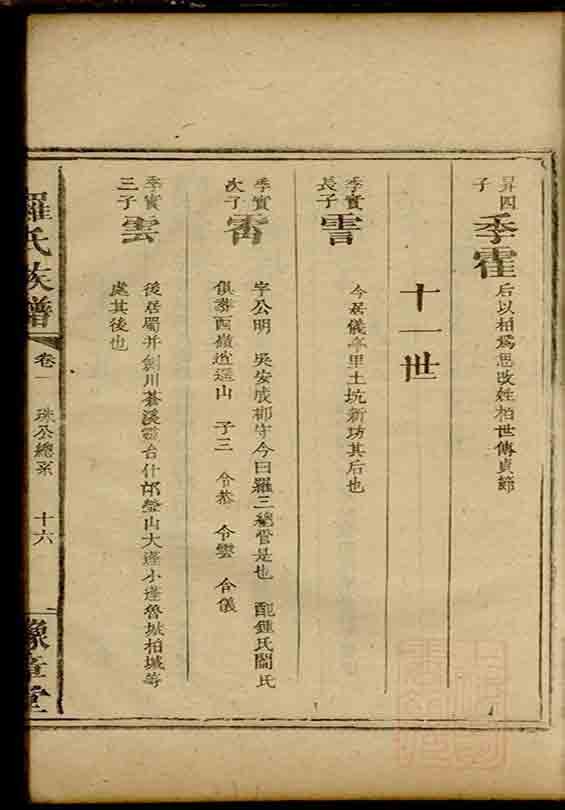 昇四
子
季霍
后以柏爲思改姓柏世傳貞節
十一世
季實
長子
今居儀亭里土坑新坊其后也
季實
次子
字公明 吳安成郡守今曰羅三總管是也 配鍾氏閻氏
俱葬西嶺逍遥山 子三 令恭 令雲 令儀
季實
三子
雲
後居蜀并劍川蒼溪雲台什邡營山大蓬小蓬魯城柏城等
處其後也
羅氏族譜
卷一
珠公總系
十六
豫章堂